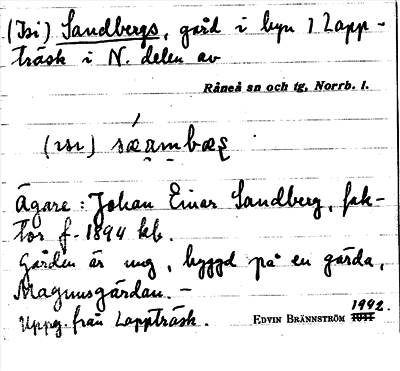 (Isi) Sandbergs, gård i byn 1 Lapp-
träsk i N. delen av
Råneå sn och tg, Norrb. l.
Ägare: Johan Einar Sandberg, fak-
tor f. 1894 kb.
Gården är ung, byggd på en gärda,
Magnusgärdan. -
Uppg. från Lappträsk.
EDVIN BRÄNNSTRÖM 1942.